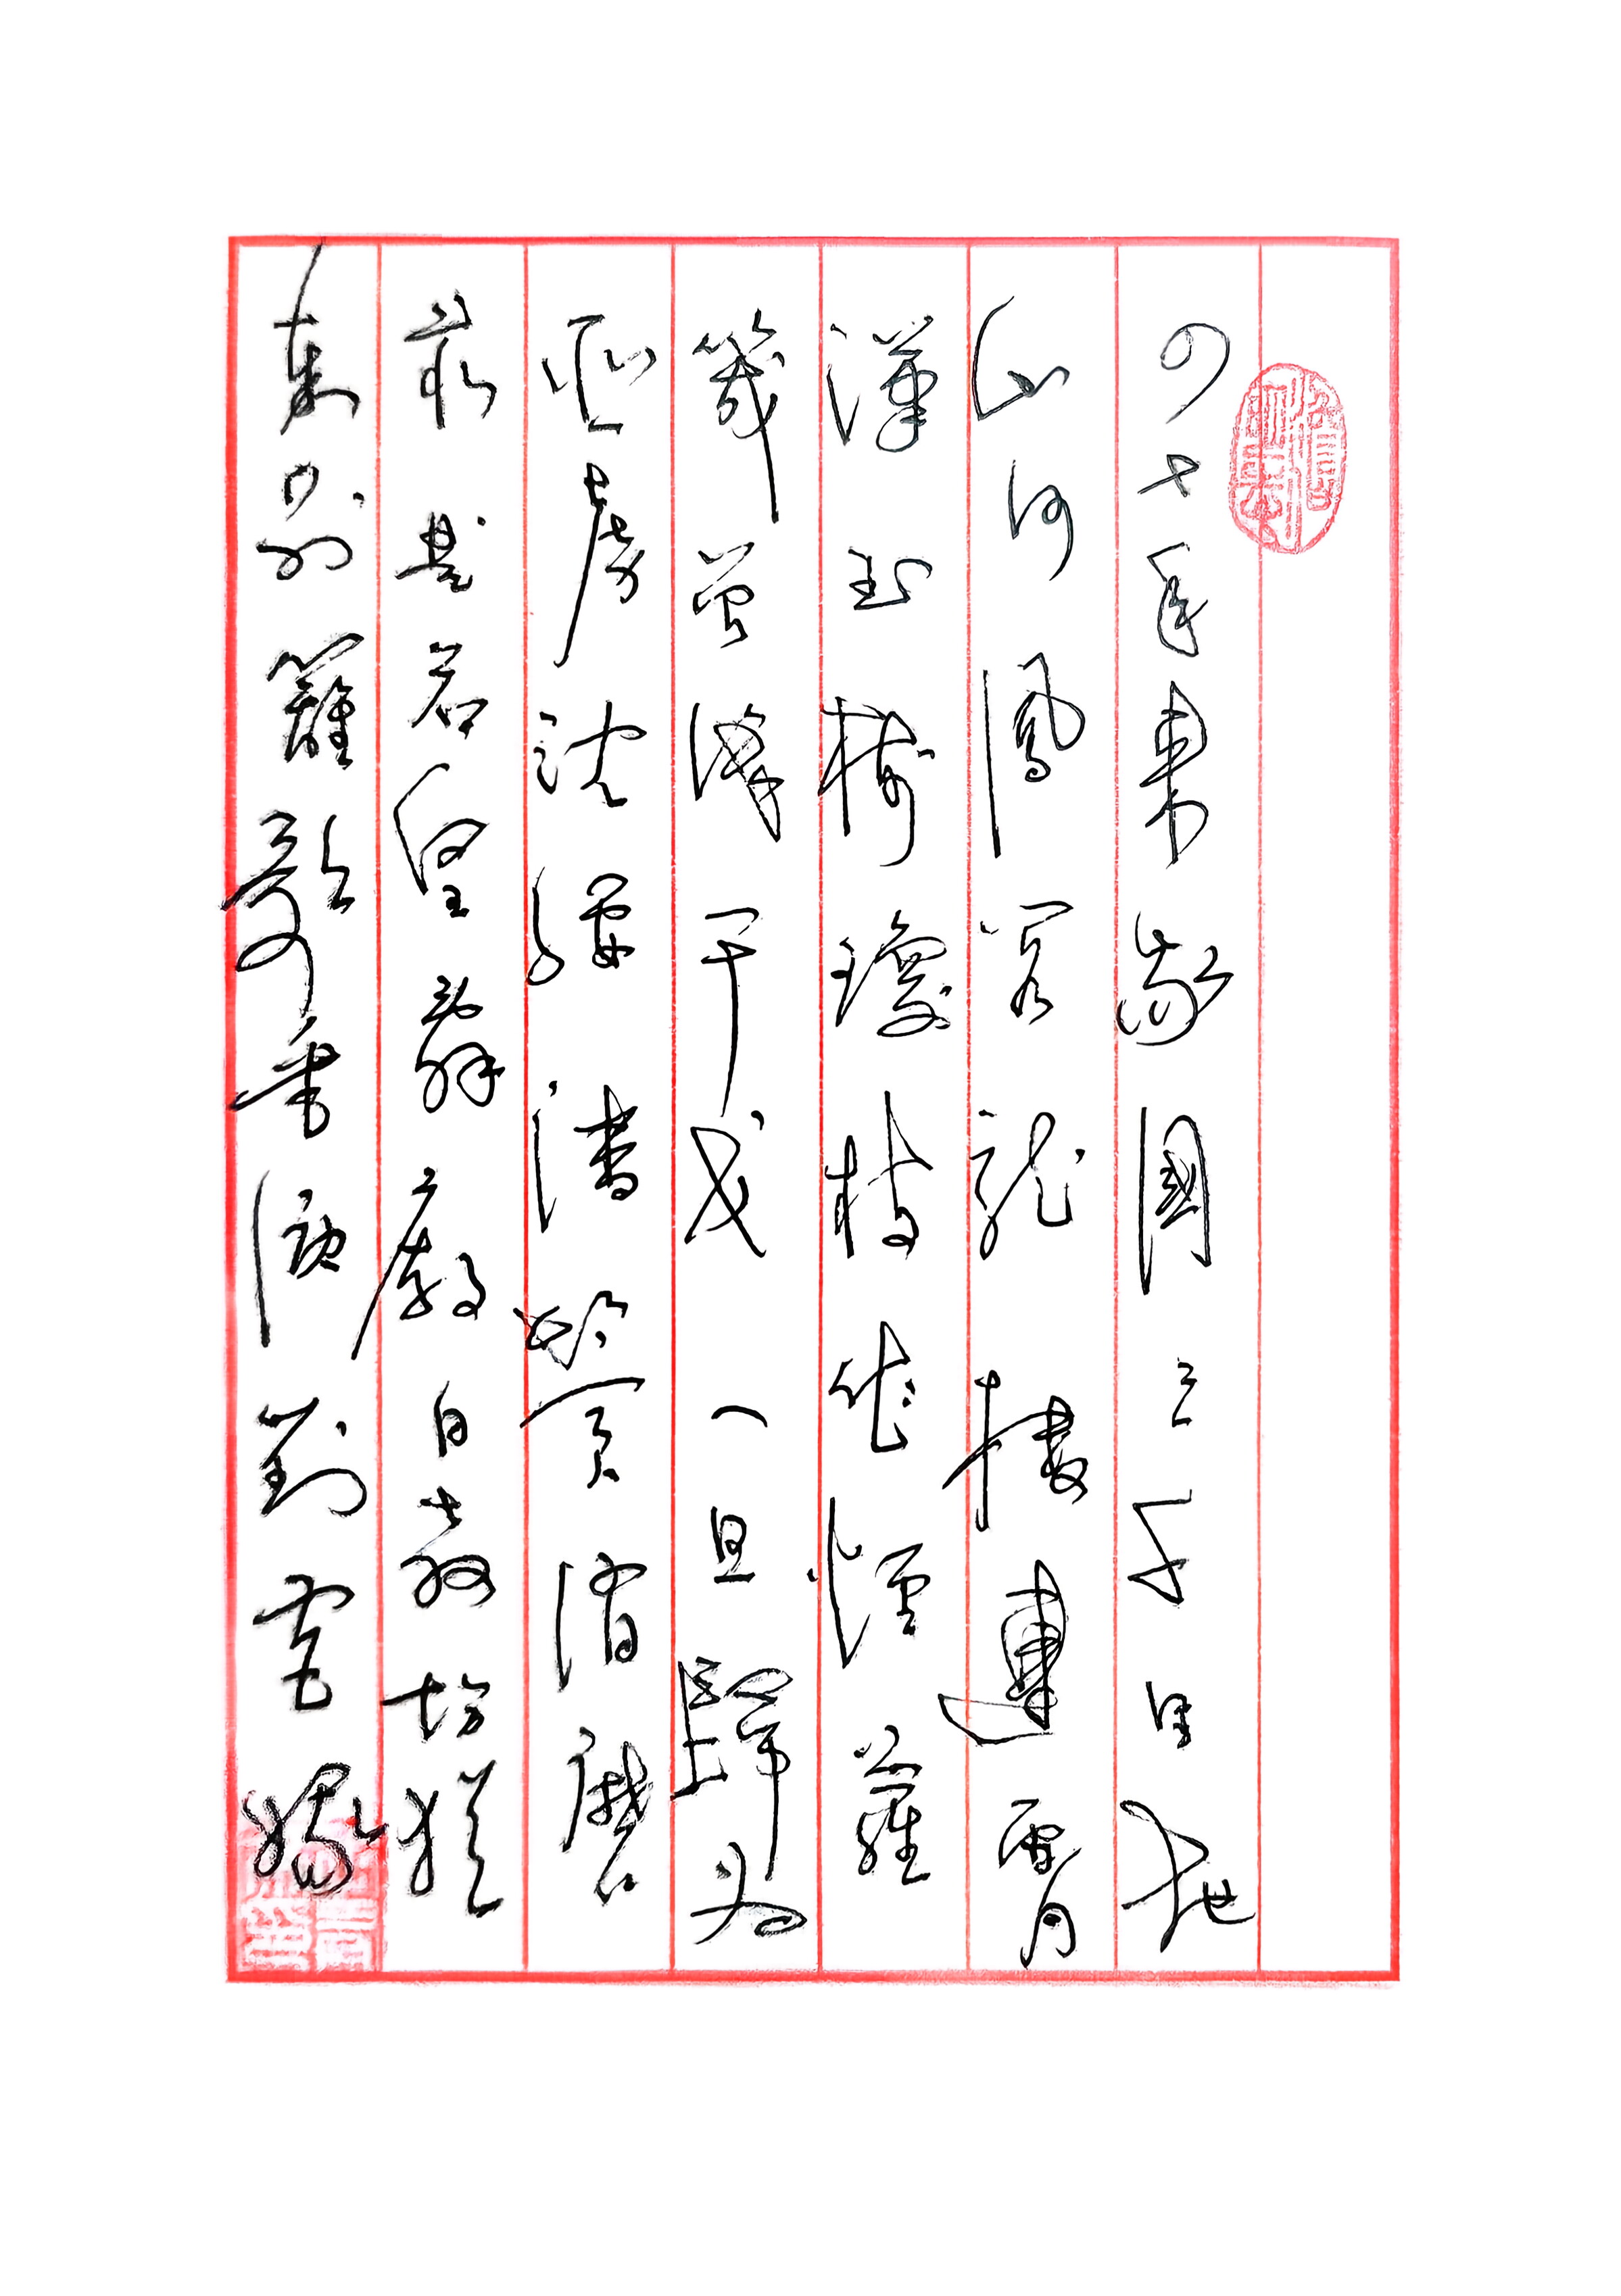 四十年來家國三千里地
山河鳳閣龍樓連霄
漢玉樹瓊枝作煙蘿
幾曾識干戈一旦歸為
臣虜沈腰潘鬢消磨
最是倉皇辭廟日教坊猶
奏別離歌垂淚對宮娥